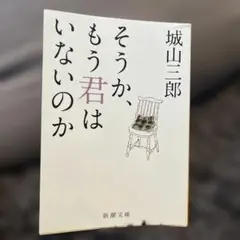 城山三郎
そうか、
もう君は
いないのか
新潮文庫